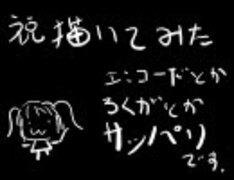 祝描いてみた
エンコードとか
ろくがとか
サンパリ
です。